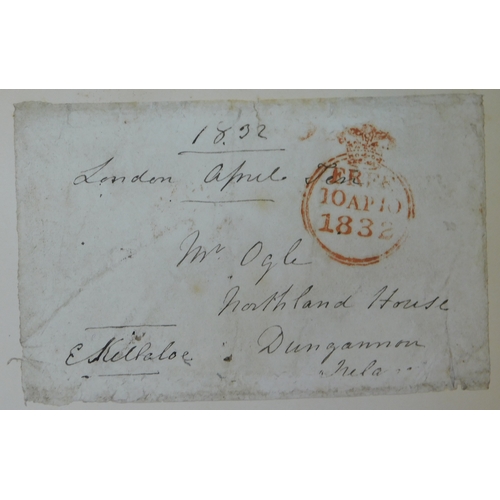 1832
London April Ten
FREE
10AP10
1832
Mr Ogle
Northland House
E Killaloe
Dungannon
Irela